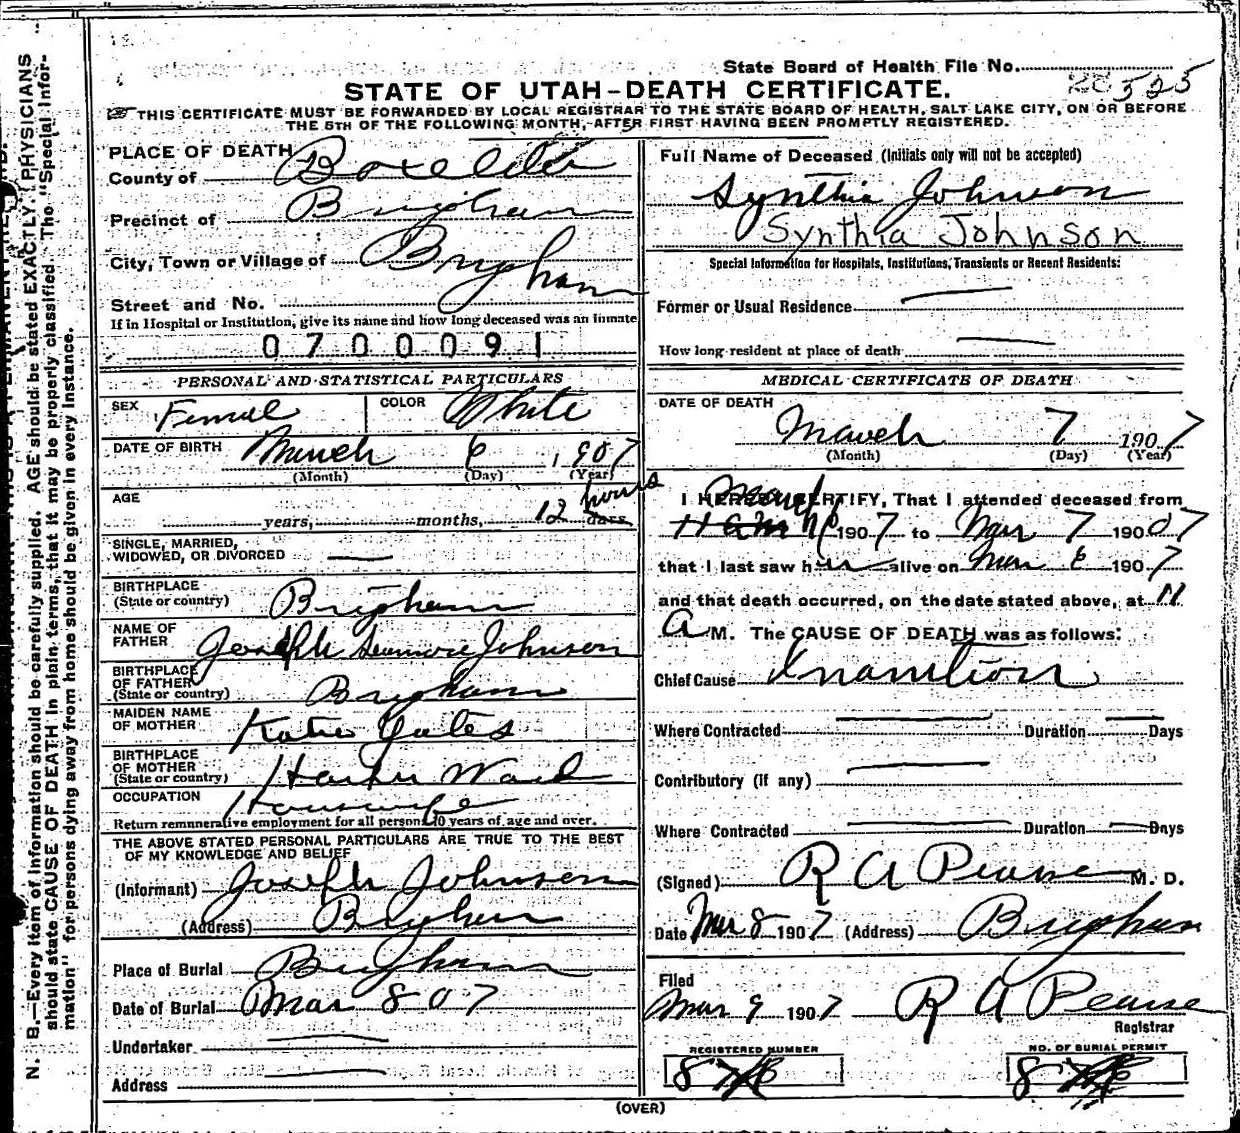 State Board of Health File No. 525
STATE OF UTAH-DEATH CERTIFICATE.
THIS CERTIFICATE MUST BE FORWARDED BY LOCAL REGISTRAR TO THE STATE BOARD OF HEALTH, SALT LAKE CITY, ON OR BEFORE
THE 5TH OF THE FOLLOWING MONTH, AFTER FIRST HAVING BEEN PROMPTLY REGISTERED.
PLACE OF DEATH
County of Boxelder
Precinct of Brigham
City, Town or Village of Brigham
Street and No.
If in Hospital or Institution, give its name and how long deceased was an inmate
0700091
PERSONAL AND STATISTICAL PARTICULARS
SEX Femal COLOR White
DATE OF BIRTH March 6, 1907
(Month) (Day) (Year)
AGE hours
years, months, 12 days
SINGLE, MARRIED,
WIDOWED, OR DIVORCED
BIRTHPLACE
(State or country) Brigham
NAME OF
FATHER Joseph Johnson
BIRTHPLACE
OF FATHER
(State or country) Brigham
MAIDEN NAME
OF MOTHER Katie Yates
BIRTHPLACE
OF MOTHER
(State or country) Harper Ward
OCCUPATION Housewife
Return remunerative employment for all persons 10 years of age and over.
THE ABOVE STATED PERSONAL PARTICULARS ARE TRUE TO THE BEST
OF MY KNOWLEDGE AND BELIEF
(Informant) Joseph Johnson
(Address) Brigham
Place of Burial Brigham
Date of Burial Mar 8 07
Undertaker
Address
Full Name of Deceased (Initials only will not be accepted)
Synthia Johnson
Synthia Johnson
Special Information for Hospitals, Institutions, Transients or Recent Residents:
Former or Usual Residence
How long resident at place of death
MEDICAL CERTIFICATE OF DEATH
DATE OF DEATH
March 7 1907
(Month) (Day) (Year)
March
I HEREBY CERTIFY, That I attended deceased from
1907 to Mar 7 1907
that I last saw her alive on Mar 6 1907
and that death occurred, on the date stated above, at 11
A M. The CAUSE OF DEATH was as follows:
Chief Cause Inanition
Where Contracted Duration Days
Contributory (if any)
Where Contracted Duration Days
(Signed) R A Pearse M. D.
Date Mar 8 1907 (Address) Brigham
Filed
Mar 9 1907 R A Pearse
Registrar
REGISTERED NUMBER NO. OF BURIAL PERMIT
8 8
(OVER)
N. B.—Every item of information should be carefully supplied. AGE should be stated EXACTLY. PHYSICIANS
should state CAUSE OF DEATH in plain terms, that it may be properly classified. The "Special Infor-
mation" for persons dying away from home should be given in every instance.